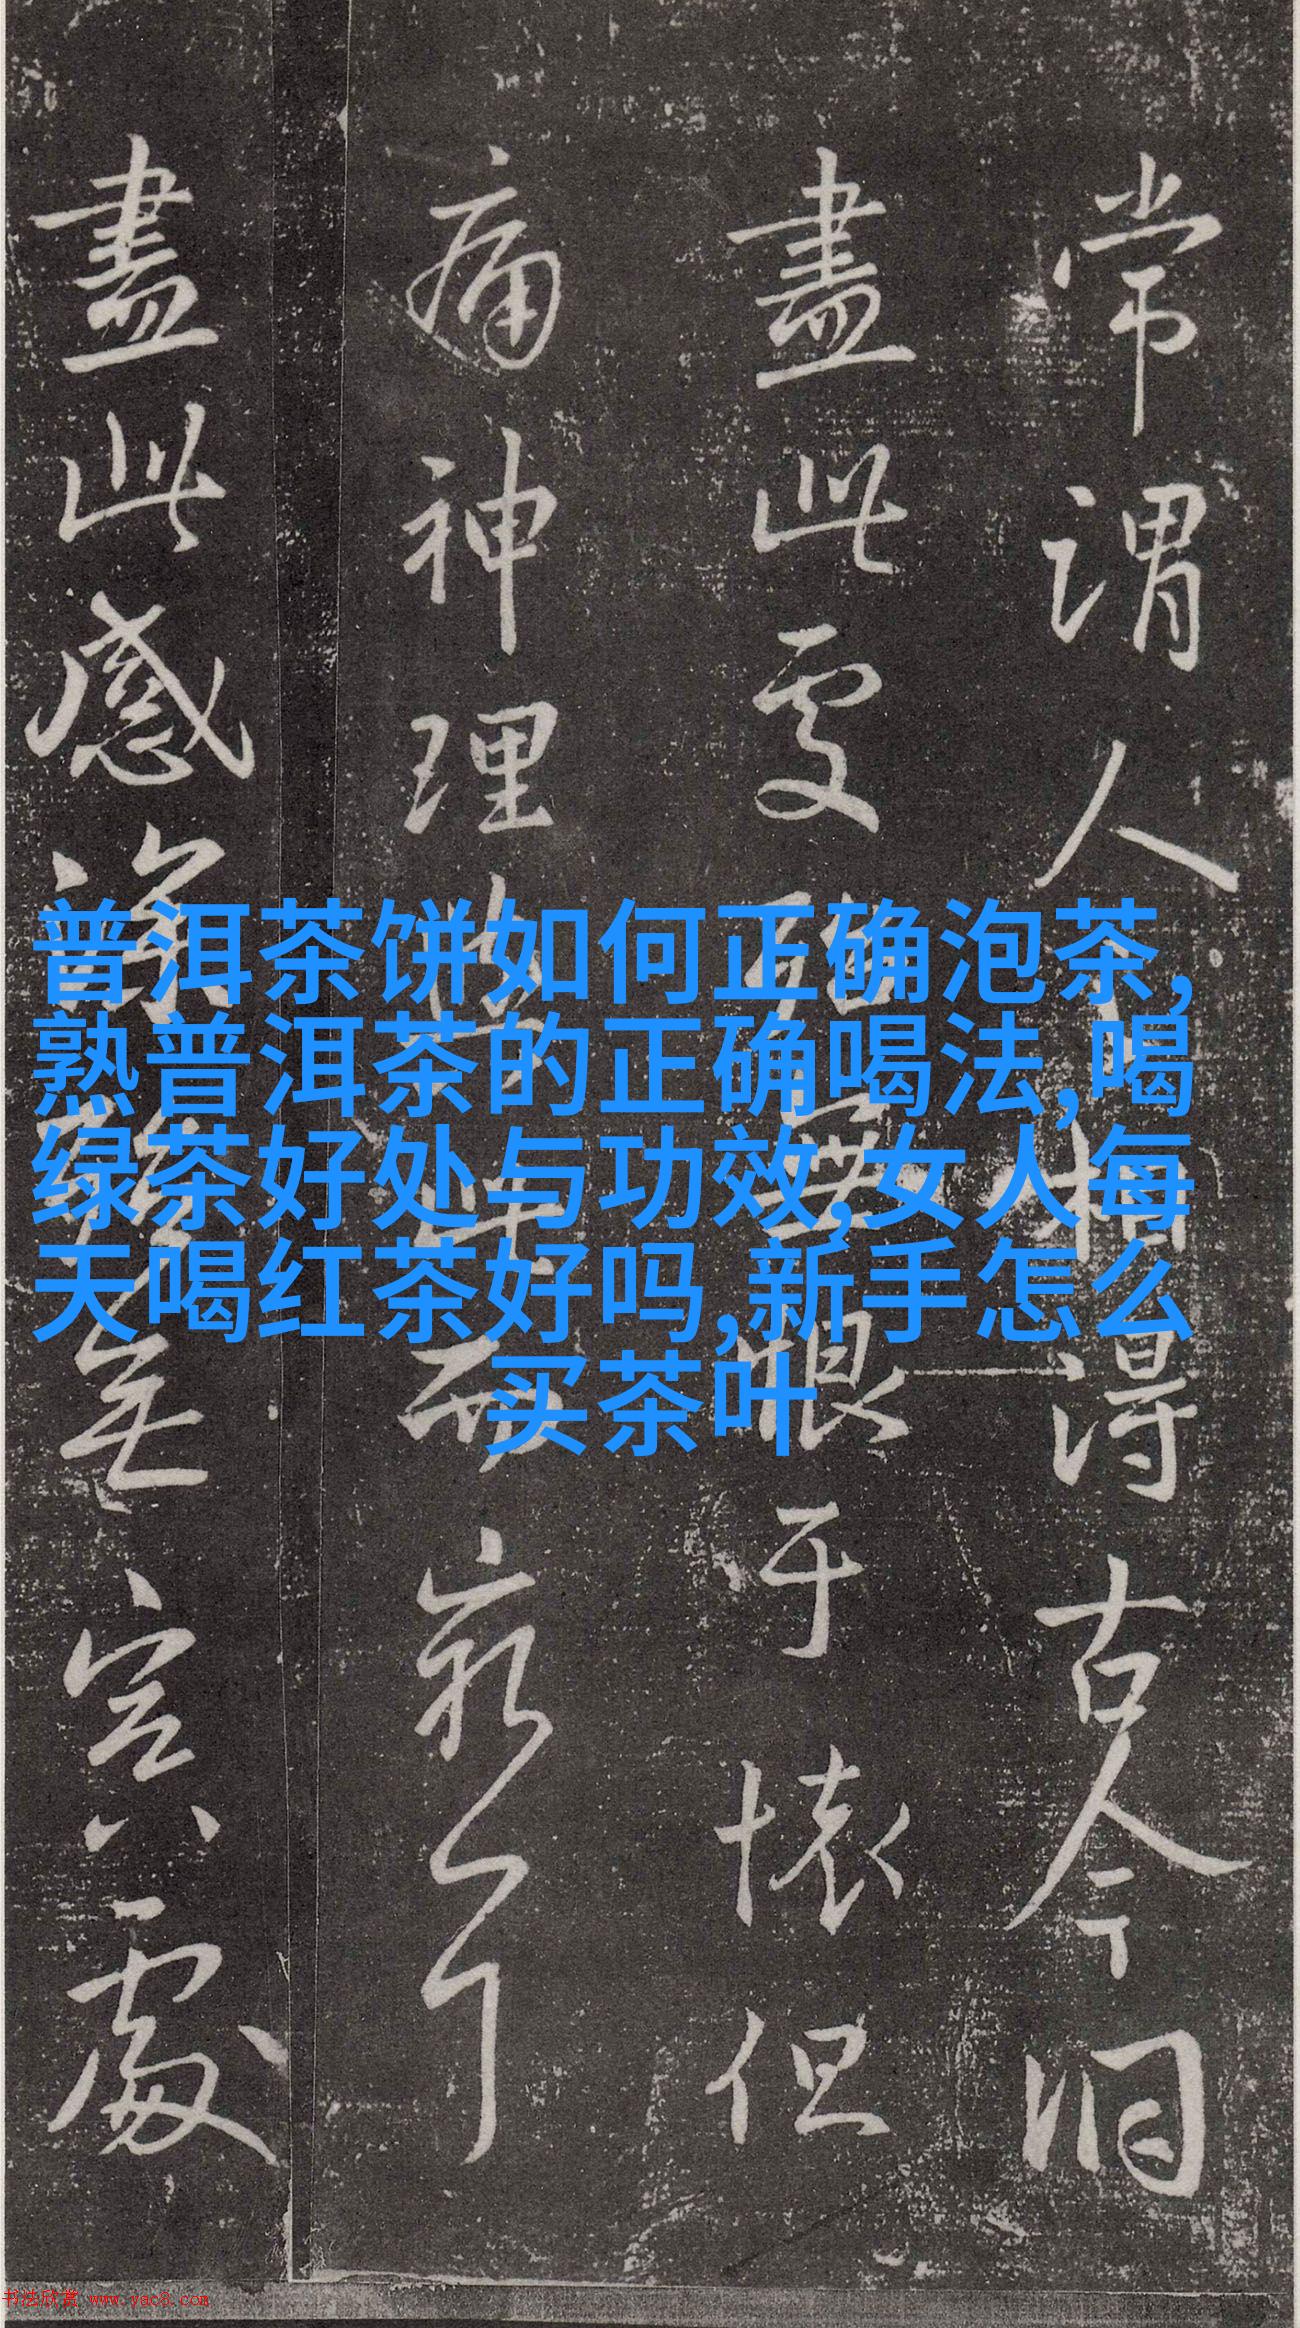 常謂人不相得古今洞
盡此處無恨于懷但
痛神理此而窮
盡此感深處
普洱茶饼如何正确泡茶,
熟普洱茶的正确喝法,喝
绿茶好处与功效,女人每
天喝红茶好吗,新手怎么
买茶叶
书法欣赏 www.yac8.com